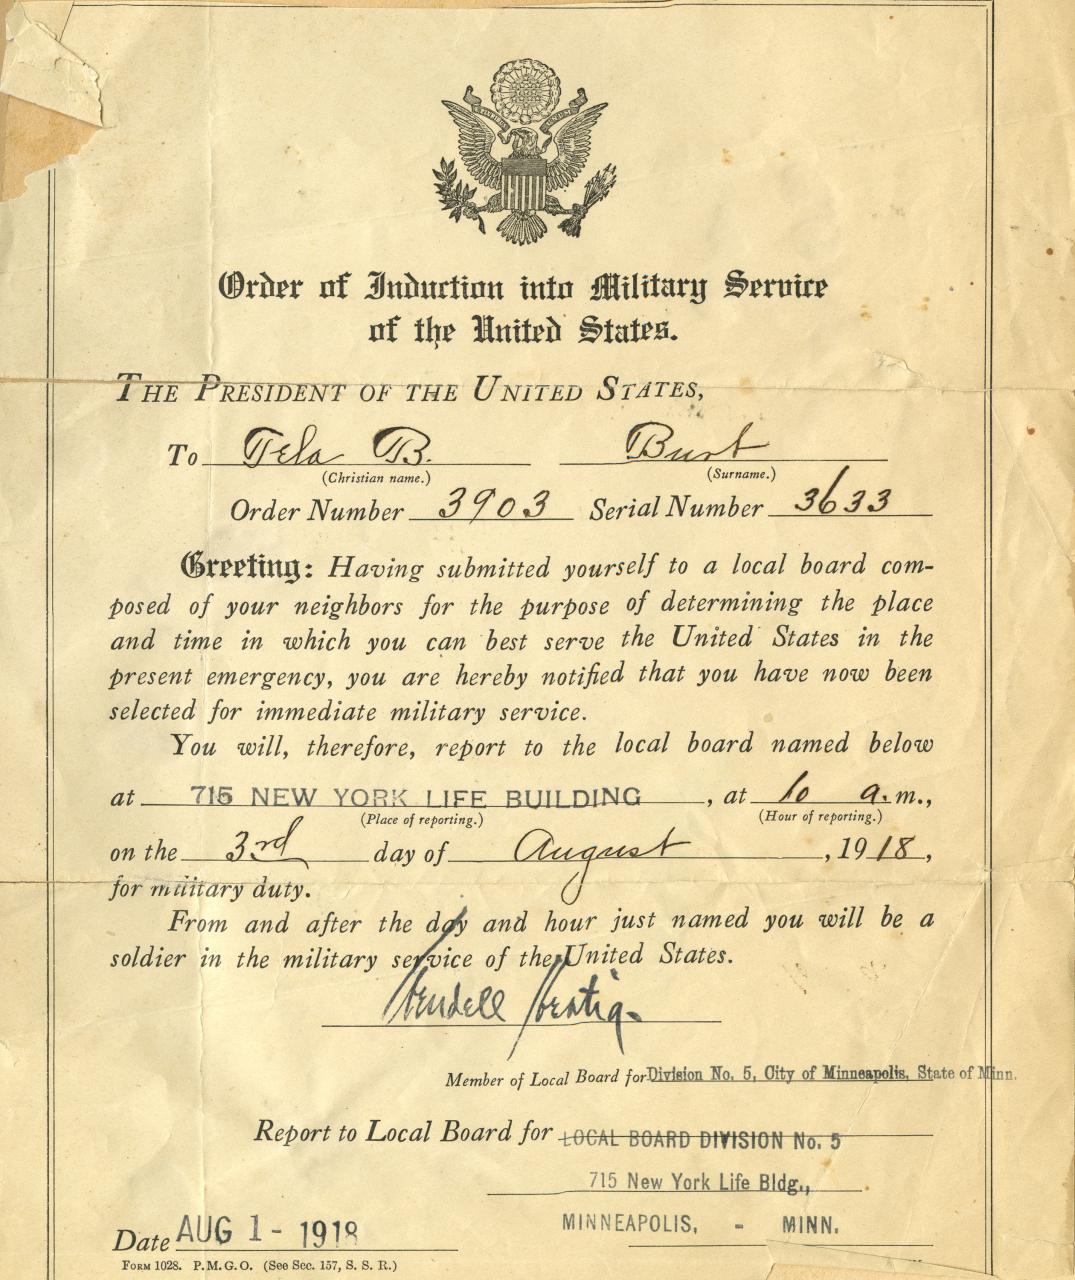 Order of Induction into Military Service
of the United States.
THE PRESIDENT OF THE UNITED STATES,
To Tela B. Burt
(Christian name.) (Surname.)
Order Number 3903 Serial Number 3633
Greeting: Having submitted yourself to a local board com-
posed of your neighbors for the purpose of determining the place
and time in which you can best serve the United States in the
present emergency, you are hereby notified that you have now been
selected for immediate military service.
You will, therefore, report to the local board named below
at 715 NEW YORK LIFE BUILDING, at 10 a.m.,
(Place of reporting.) (Hour of reporting.)
on the 3rd day of August, 1918,
for military duty.
From and after the day and hour just named you will be a
soldier in the military service of the United States.
Wendell Hertig.
Member of Local Board for Division No. 5, City of Minneapolis, State of Minn.
Report to Local Board for LOCAL BOARD DIVISION No. 5
715 New York Life Bldg.,
MINNEAPOLIS, - MINN.
Date AUG 1 - 1918
FORM 1028. P.M.G.O. (See Sec. 157, S. S. R.)